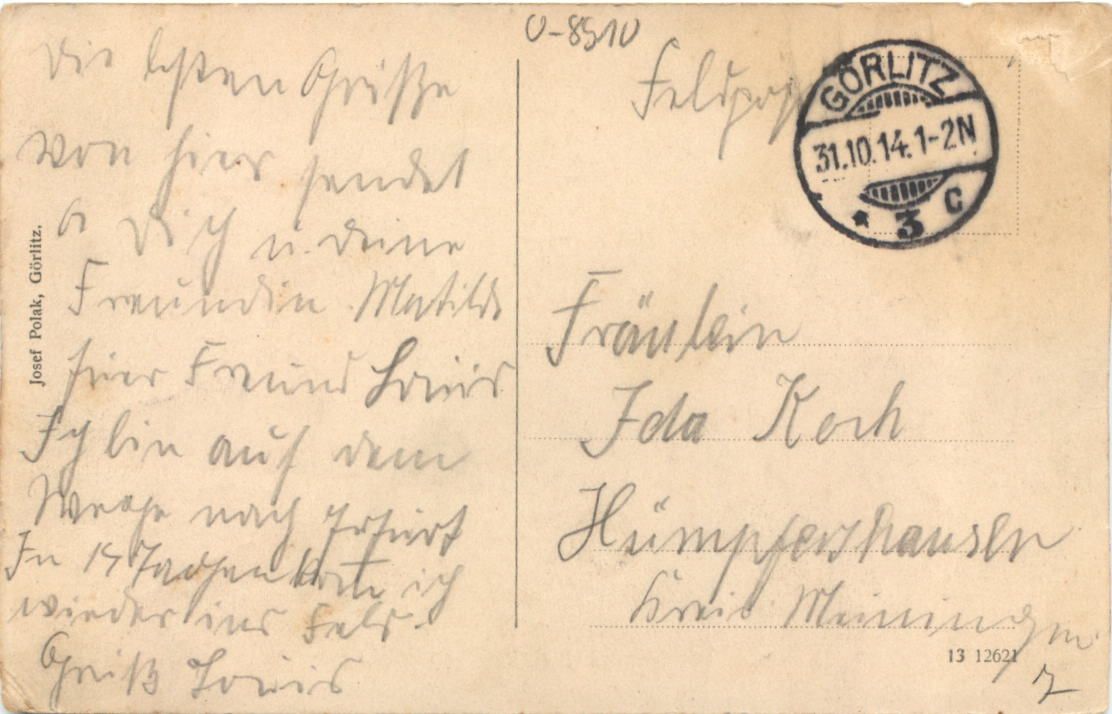 U-8510
Die besten Grüße
von hier sendet
Dich u. deine
Freundin Matilde
hier Freund Louis
Ich bin auf dem
Wege nach Erfurt
In 14 Tachen ich
wieder ins Feld.
Gruß Louis
Josef Polak, Görlitz.
Feldpost
GÖRLITZ
31.10.14. 1-2N
* 3 c
Fräulein
Ida Koch
Hümpfershausen
Kreis Meiningen
13 12621